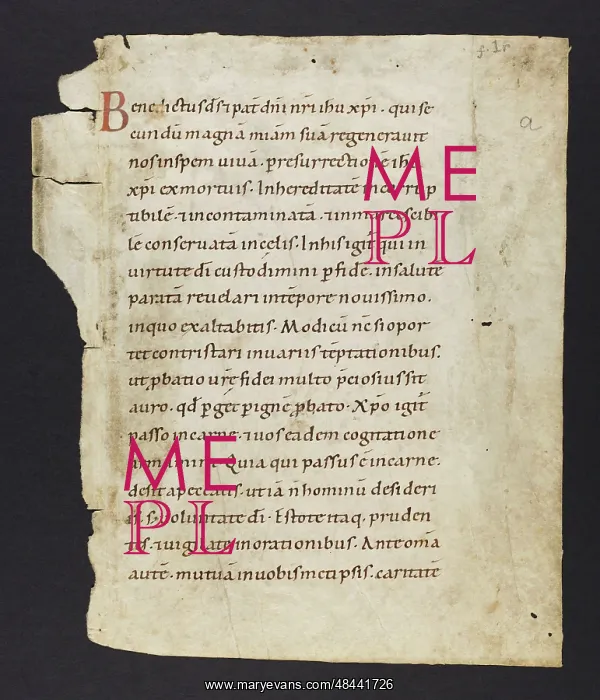 f. 1r
a
Benedictus ds ⁊ pat̄ dn̄i nr̄i ihu xp̄i · qui se
cundū magnā miām suā regenerauit
nos inspem uiuā · p resurrectionē ihu
xp̄i ex mortuis · In hereditatē incorrup
tibilē · ⁊ incontaminatā · ⁊ inmarcescibi
lē conseruatā in celis · In his igit̄ qui in
uirtute dī custodimini p̄ fidē · in salutē
paratā reuelari in tēpore nouissimo ·
in quo exaltabitis · Modicū n̄c si opor
tet contristari in uariis tēptationibus ·
ut ꝓbatio ur̄e fidei multo p̄ciosius sit
auro · qd̄ p̄ ignē ꝓbato · Xp̄o igit̄
passo in carne · ⁊ uos eadem cogitatione
armamini Quia qui passus ē in carne ·
desiit a peccatis · ut iā n̄ hominū desideri
is · s; uoluntate dī · Estote itaq · pruden
tes · ⁊ uigilate in orationibus · Ante om̄a
autē · mutuā in uobismetipsis · caritatē
ME
PL
ME
PL
www.maryevans.com/48441726